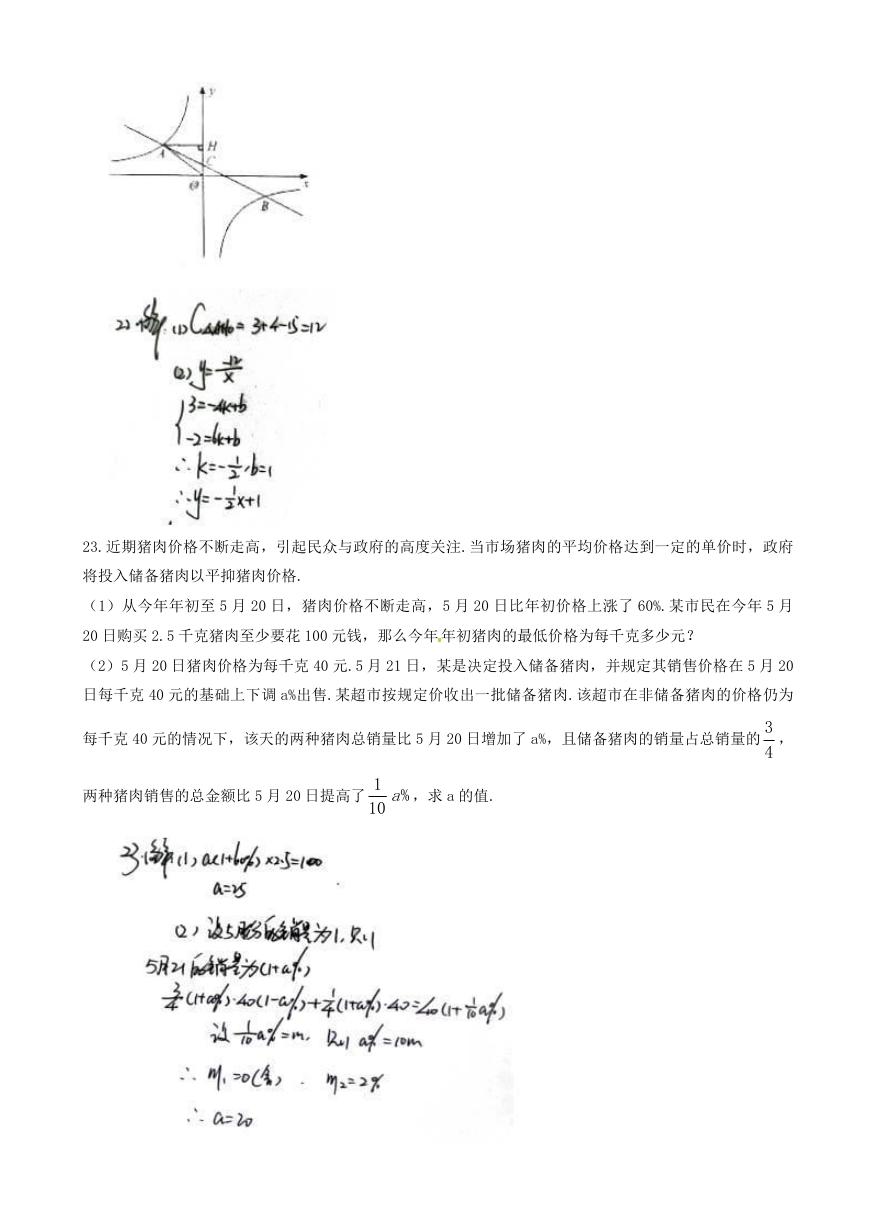 y
A
H
C
O
x
B
22.解:(1)C△AHO=3+4+5=12
(2)y=-12/x
3=-4k+b
-2=6k+b
∴k=-1/2,b=1
∴y=-1/2x+1
23.近期猪肉价格不断走高，引起民众与政府的高度关注.当市场猪肉的平均价格达到一定的单价时，政府
将投入储备猪肉以平抑猪肉价格.
（1）从今年年初至 5 月 20 日，猪肉价格不断走高，5 月 20 日比年初价格上涨了 60%.某市民在今年 5 月
20 日购买 2.5 千克猪肉至少要花 100 元钱，那么今年年初猪肉的最低价格为每千克多少元？
（2）5 月 20 日猪肉价格为每千克 40 元.5 月 21 日，某是决定投入储备猪肉，并规定其销售价格在 5 月 20
日每千克 40 元的基础上下调 a%出售.某超市按规定价收出一批储备猪肉.该超市在非储备猪肉的价格仍为
每千克 40 元的情况下，该天的两种猪肉总销量比 5 月 20 日增加了 a%，且储备猪肉的销量占总销量的 3/4，
两种猪肉销售的总金额比 5 月 20 日提高了 1/10 a%，求 a 的值.
23.解:(1)a(1+60%)×2.5=100
a=25
(2)设5月20日的销量为1,则
5月21日的销量为(1+a%)
3/4(1+a%)·40(1-a%)+1/4(1+a%)·40=40(1+1/10a%)
设1/10a%=m,则a%=10m
∴m₁=0(舍) . m₂=2%
∴a=20